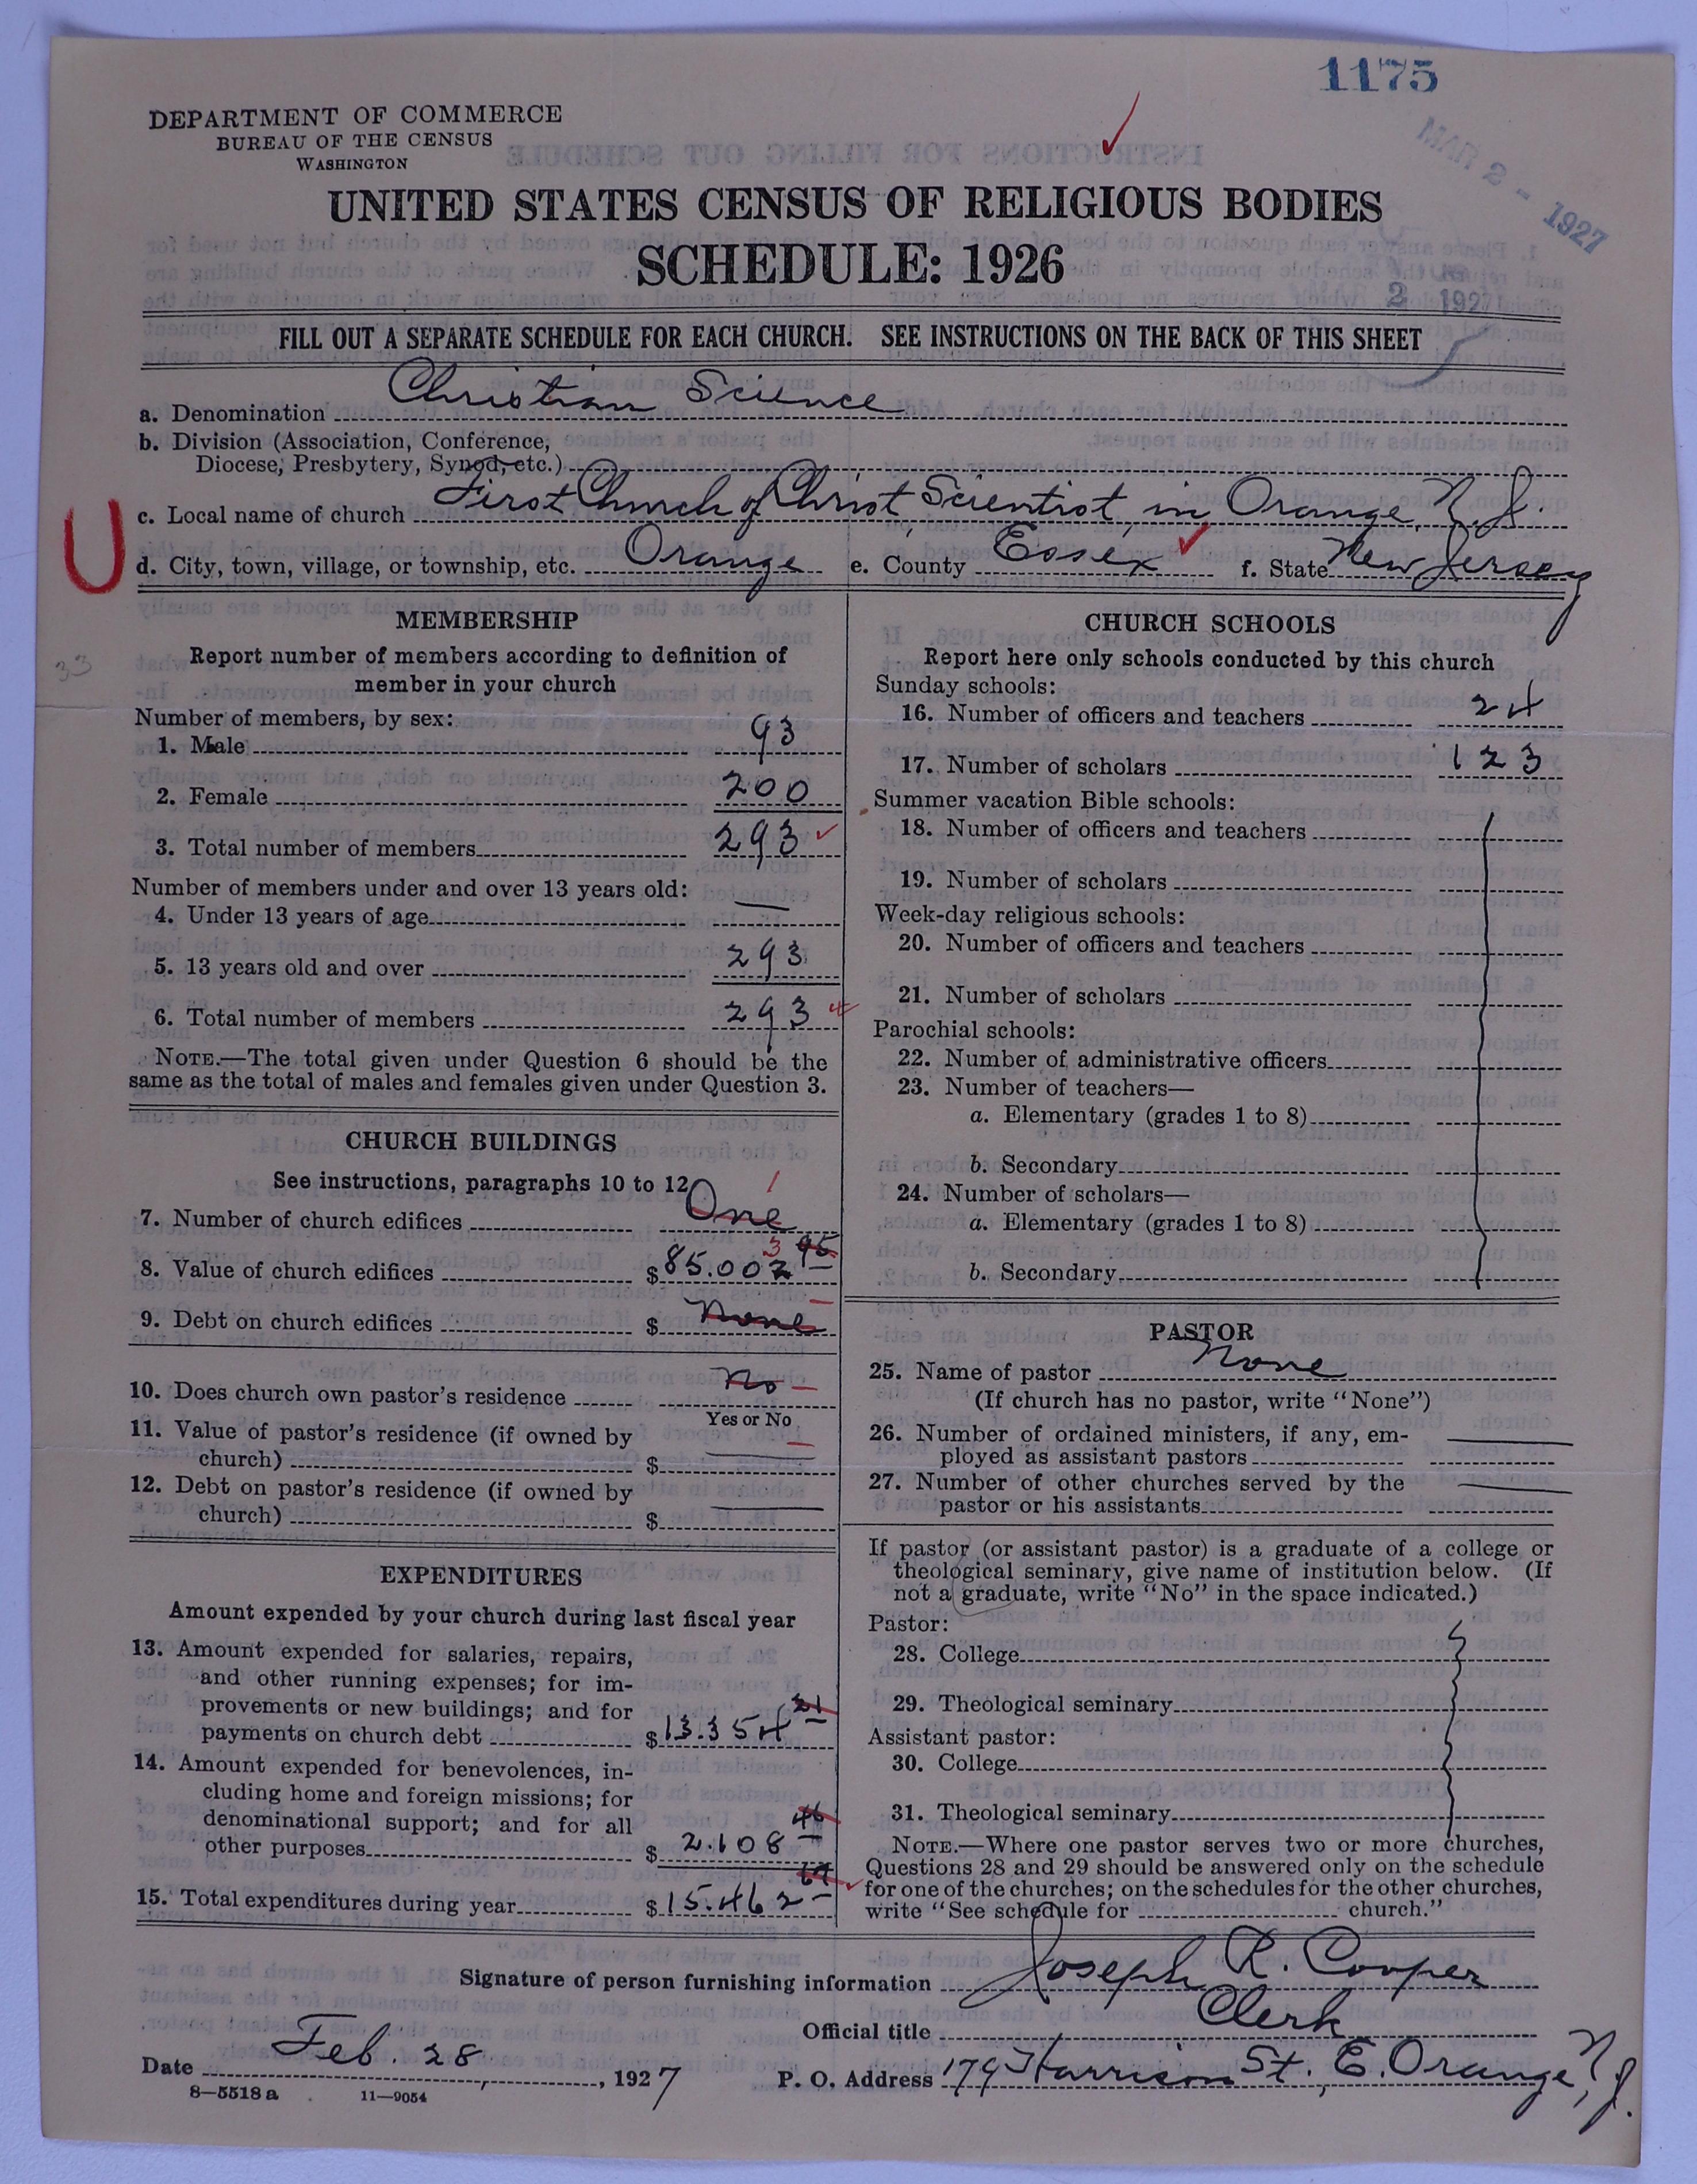 1175
MAR 2 - 1927
2 1927
DEPARTMENT OF COMMERCE
BUREAU OF THE CENSUS
WASHINGTON
UNITED STATES CENSUS OF RELIGIOUS BODIES
SCHEDULE: 1926
FILL OUT A SEPARATE SCHEDULE FOR EACH CHURCH. SEE INSTRUCTIONS ON THE BACK OF THIS SHEET
a. Denomination Christian Science
b. Division (Association, Conference,
Diocese, Presbytery, Synod, etc.)
U
c. Local name of church First Church of Christ, Scientist, in Orange, N.J.
d. City, town, village, or township, etc. Orange e. County Essex f. State New Jersey
33
MEMBERSHIP
Report number of members according to definition of
member in your church
Number of members, by sex:
1. Male 93
2. Female 200
3. Total number of members 293
Number of members under and over 13 years old:
4. Under 13 years of age —
5. 13 years old and over 293
6. Total number of members 293
NOTE.—The total given under Question 6 should be the
same as the total of males and females given under Question 3.
CHURCH BUILDINGS
See instructions, paragraphs 10 to 12
7. Number of church edifices One 1
8. Value of church edifices $85.002 95 3
9. Debt on church edifices $ None —
10. Does church own pastor's residence No —
Yes or No
11. Value of pastor's residence (if owned by
church) $ —
12. Debt on pastor's residence (if owned by
church) $ —
EXPENDITURES
Amount expended by your church during last fiscal year
13. Amount expended for salaries, repairs,
and other running expenses; for im-
provements or new buildings; and for
payments on church debt $13.354 21
14. Amount expended for benevolences, in-
cluding home and foreign missions; for
denominational support; and for all
other purposes $ 2.108 46
15. Total expenditures during year $15.462 67
CHURCH SCHOOLS
Report here only schools conducted by this church
Sunday schools:
16. Number of officers and teachers 24
17. Number of scholars 123
Summer vacation Bible schools:
18. Number of officers and teachers
19. Number of scholars
Week-day religious schools:
20. Number of officers and teachers
21. Number of scholars
Parochial schools:
22. Number of administrative officers
23. Number of teachers—
a. Elementary (grades 1 to 8)
b. Secondary
24. Number of scholars—
a. Elementary (grades 1 to 8)
b. Secondary
PASTOR
25. Name of pastor None
(If church has no pastor, write "None")
26. Number of ordained ministers, if any, em-
ployed as assistant pastors —
27. Number of other churches served by the
pastor or his assistants —
If pastor (or assistant pastor) is a graduate of a college or
theological seminary, give name of institution below. (If
not a graduate, write "No" in the space indicated.)
Pastor:
28. College
29. Theological seminary
Assistant pastor:
30. College
31. Theological seminary
NOTE.—Where one pastor serves two or more churches,
Questions 28 and 29 should be answered only on the schedule
for one of the churches; on the schedules for the other churches,
write "See schedule for church."
Signature of person furnishing information Joseph R. Cooper
Official title Clerk
Date Feb. 28, 1927 P. O. Address 179 Harrison St., E. Orange, N.J.
8—5518 a 11—9054